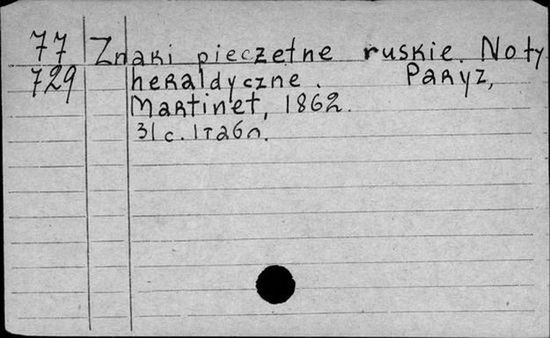 77 Znaki pieczetne ruskie. Noty
729 heraldyczne. Paryz,
Martinet, 1862.
31 c. 1 табл.